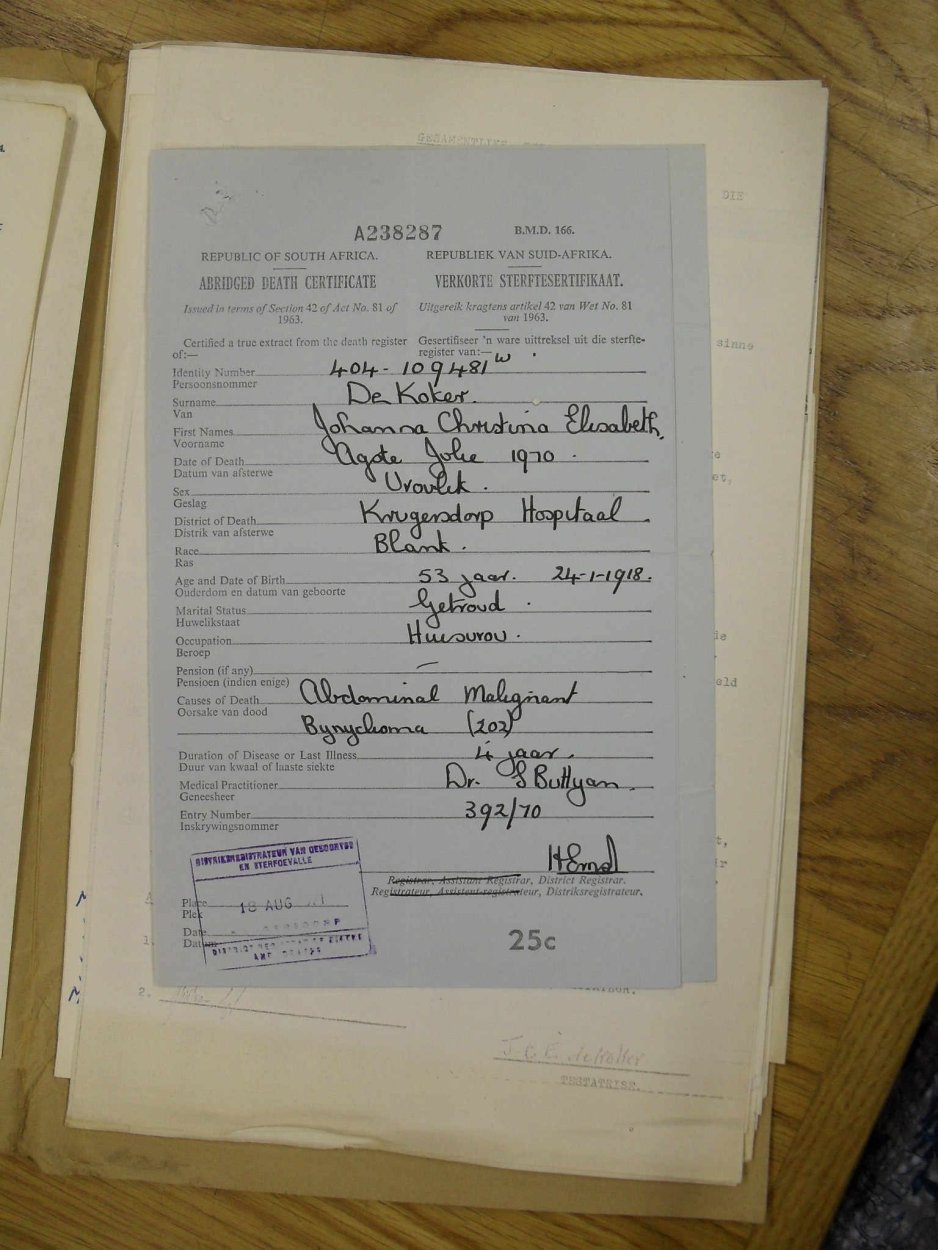 GESAMENTLIKE
DIE
sinne
A238287 B.M.D. 166.
REPUBLIC OF SOUTH AFRICA. REPUBLIEK VAN SUID-AFRIKA.
ABRIDGED DEATH CERTIFICATE VERKORTE STERFTESERTIFIKAAT.
Issued in terms of Section 42 of Act No. 81 of Uitgereik kragtens artikel 42 van Wet No. 81
1963. van 1963.
Certified a true extract from the death register Gesertifiseer 'n ware uittreksel uit die sterfte-
of:— register van:—
Identity Number 404-109481 W
Persoonsnommer
Surname De Koker.
Van
First Names Johanna Christina Elisabeth.
Voorname
Date of Death Agste Julie 1970.
Datum van afsterwe
Sex Vroulik.
Geslag
District of Death Krugersdorp Hospitaal
Distrik van afsterwe
Race Blank.
Ras
Age and Date of Birth 53 jaar. 24-1-1918.
Ouderdom en datum van geboorte
Marital Status Getroud.
Huwelikstaat
Occupation Huisvrou.
Beroep
Pension (if any) —
Pensioen (indien enige)
Causes of Death Abdominal Malignant
Oorsake van dood
(202)
Duration of Disease or Last Illness 4 jaar.
Duur van kwaal of laaste siekte
Medical Practitioner Dr. S Buttyan.
Geneesheer
Entry Number 392/70
Inskrywingsnommer
DISTRIKSREGISTRATEUR VAN GEBOORTES
EN STERFGEVALLE
Registrar, Assistant Registrar, District Registrar.
Registrateur, Assistent-registrateur, Distriksregistrateur.
Place
Plek
18 AUG
Date
Datum
DISTRICT REGISTRAR OF BIRTHS
AND DEATHS
25c
1.
2.
J. C. E. de Koker
TESTATRISE.